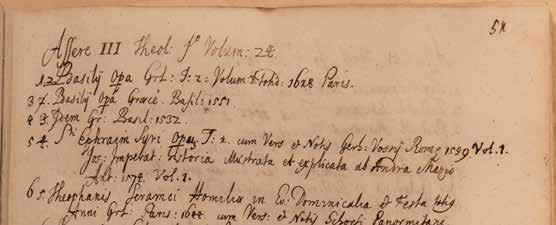 51
Assere III Theol: fo Volum: 24.
1.2. Basilij Opa Grl: T: 2: Volum totid: 1628 Paris.
3 7. Basilij Opa Græcè. Basil: 1551.
4 3. Idem Gr: Basil: 1532.
5 4. Sti Ephraim Syri Opa T: 2. cum Vers et Notis Gerh: Vossij Romę 1589 Vol. 1.
Jos: Imperat: Istoria illustrata et explicata ab Andra
1578. Vol. 1.
6 5. Theophanis Ceramei Homiliæ in Ev: Dominicalia & Festa totiq
Anni Grl: Paris: 1644 cum Vers: et Notis Panormitane